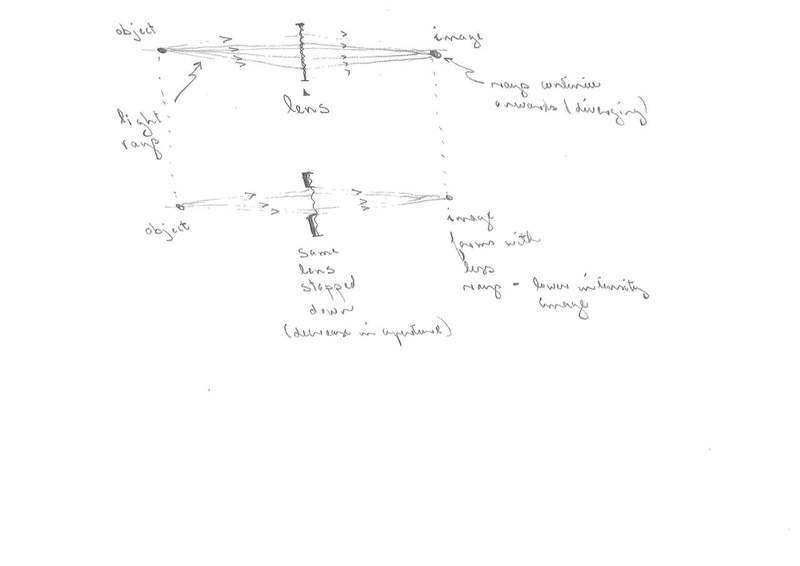 object
image
lens
rays continue
onwards (diverging)
light
rays
object
image
forms with
less
rays - lower intensity
image
same
lens
stopped
down
(decrease in aperture)